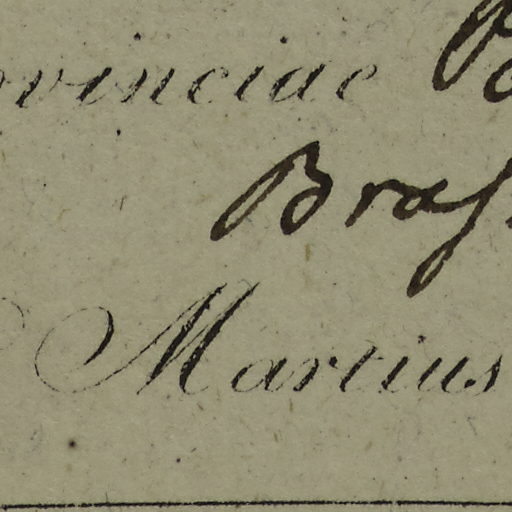 ovinciae P
Bras
Martius